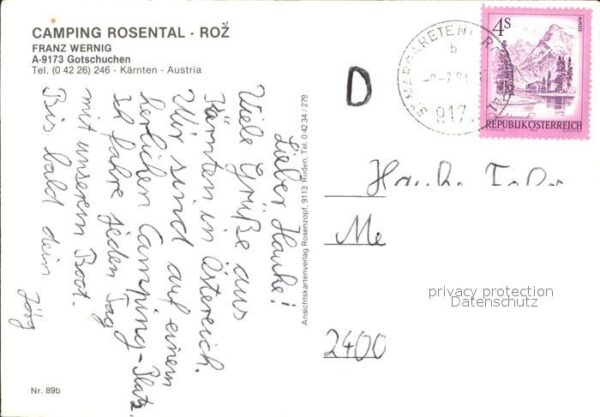 CAMPING ROSENTAL - ROŽ
FRANZ WERNIG
A-9173 Gotschuchen
Tel. (0 42 26) 246 - Kärnten - Austria
Lieber Hauke!
Viele Grüße aus
Kärnten in Östereich.
Wir sind auf einem
herlichen Camping-Platz.
Ich fahre jeden Tag
mit unserem Boot.
Bis bald dein Jörg
Nr. 89b
Ansichtskartenverlag Rosenzopf, 9113 Ruden, Tel. 0 42 34 / 279
D
ST. MARGARETEN
b
917
4S
REPUBLIK ÖSTERREICH
Hauke
Me
privacy protection
Datenschutz
2400